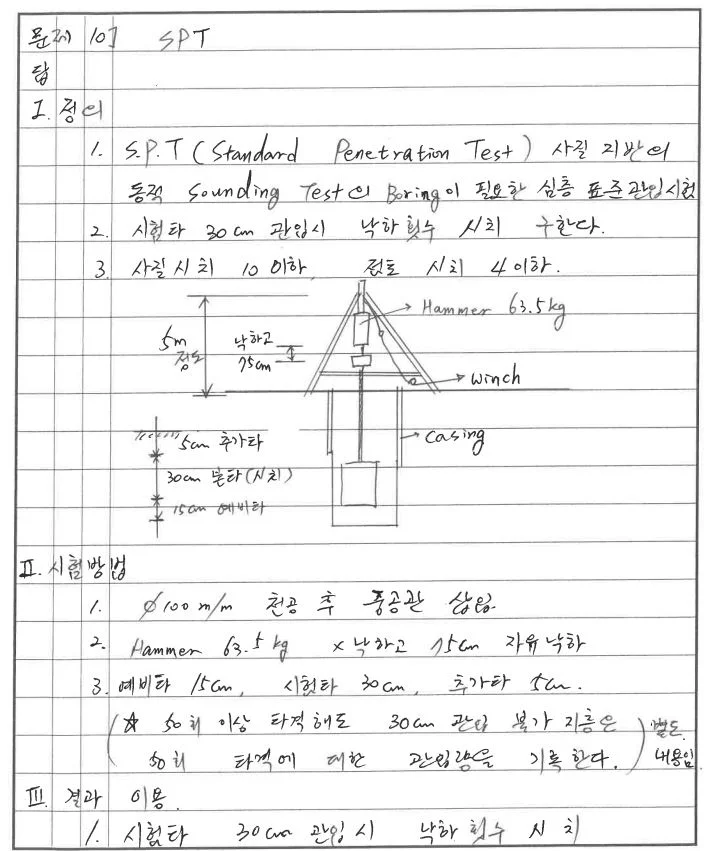 문제 10] SPT
답
I. 정의
1. S.P.T (Standard Penetration Test) 사질 지반의
동적 Sounding Test의 Boring이 필요한 심층 표준관입시험
2. 시험타 30cm 관입시 낙하횟수 N치 구한다.
3. 사질 N치 10이하, 점토 N치 4이하.
Hammer 63.5kg
5m 정도
낙하고 75cm
winch
casing
5cm 추가타
30cm 본타(N치)
15cm 예비타
II. 시험방법
1. ∅100m/m 천공 후 중공관 삽입
2. Hammer 63.5kg × 낙하고 75cm 자유낙하
3. 예비타 15cm, 시험타 30cm, 추가타 5cm.
(☆ 50회 이상 타격해도 30cm 관입 불가 지층은
50회 타격에 대한 관입량을 기록한다.) 별도 내용임
III. 결과 이용.
1. 시험타 30cm 관입시 낙하 횟수 N치